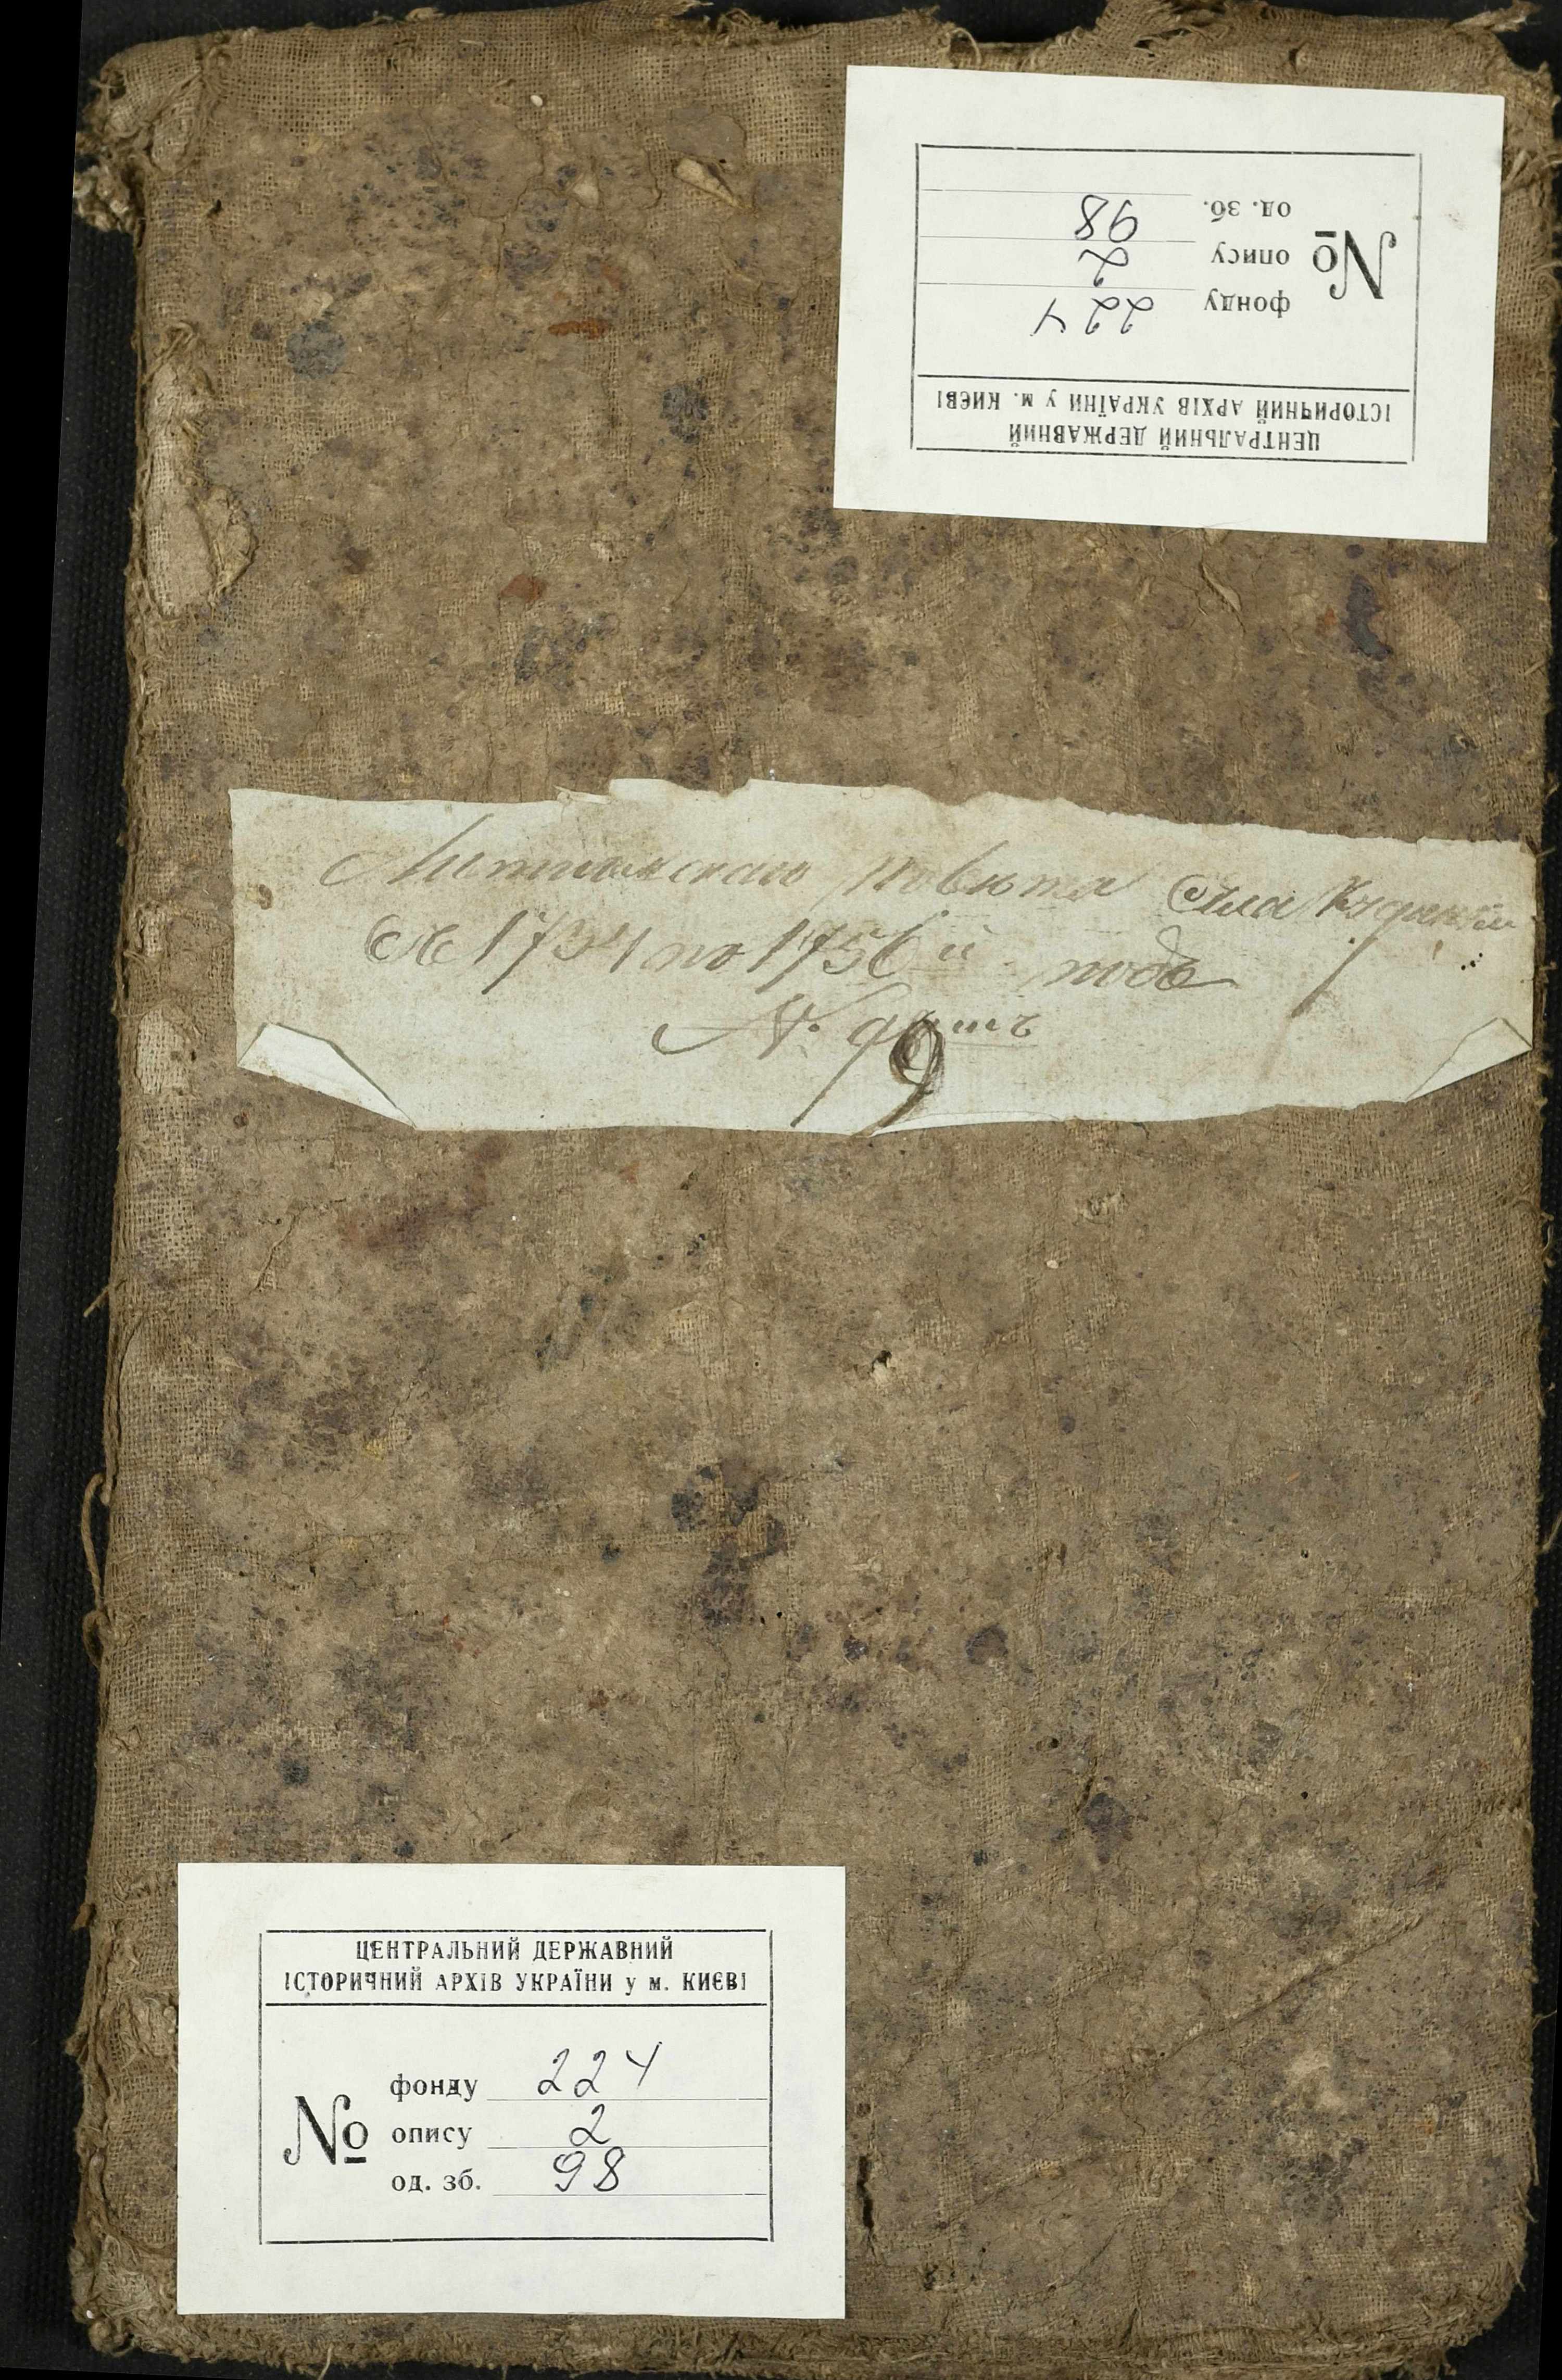 ЦЕНТРАЛЬНИЙ ДЕРЖАВНИЙ
ІСТОРИЧНИЙ АРХІВ УКРАЇНИ у м. КИЄВІ
№
фонду 224
опису 2
од. зб. 98
повѣта Села
по 1756й годъ
№.
9
ЦЕНТРАЛЬНИЙ ДЕРЖАВНИЙ
ІСТОРИЧНИЙ АРХІВ УКРАЇНИ у м. КИЄВІ
№
фонду 224
опису 2
од. зб. 98